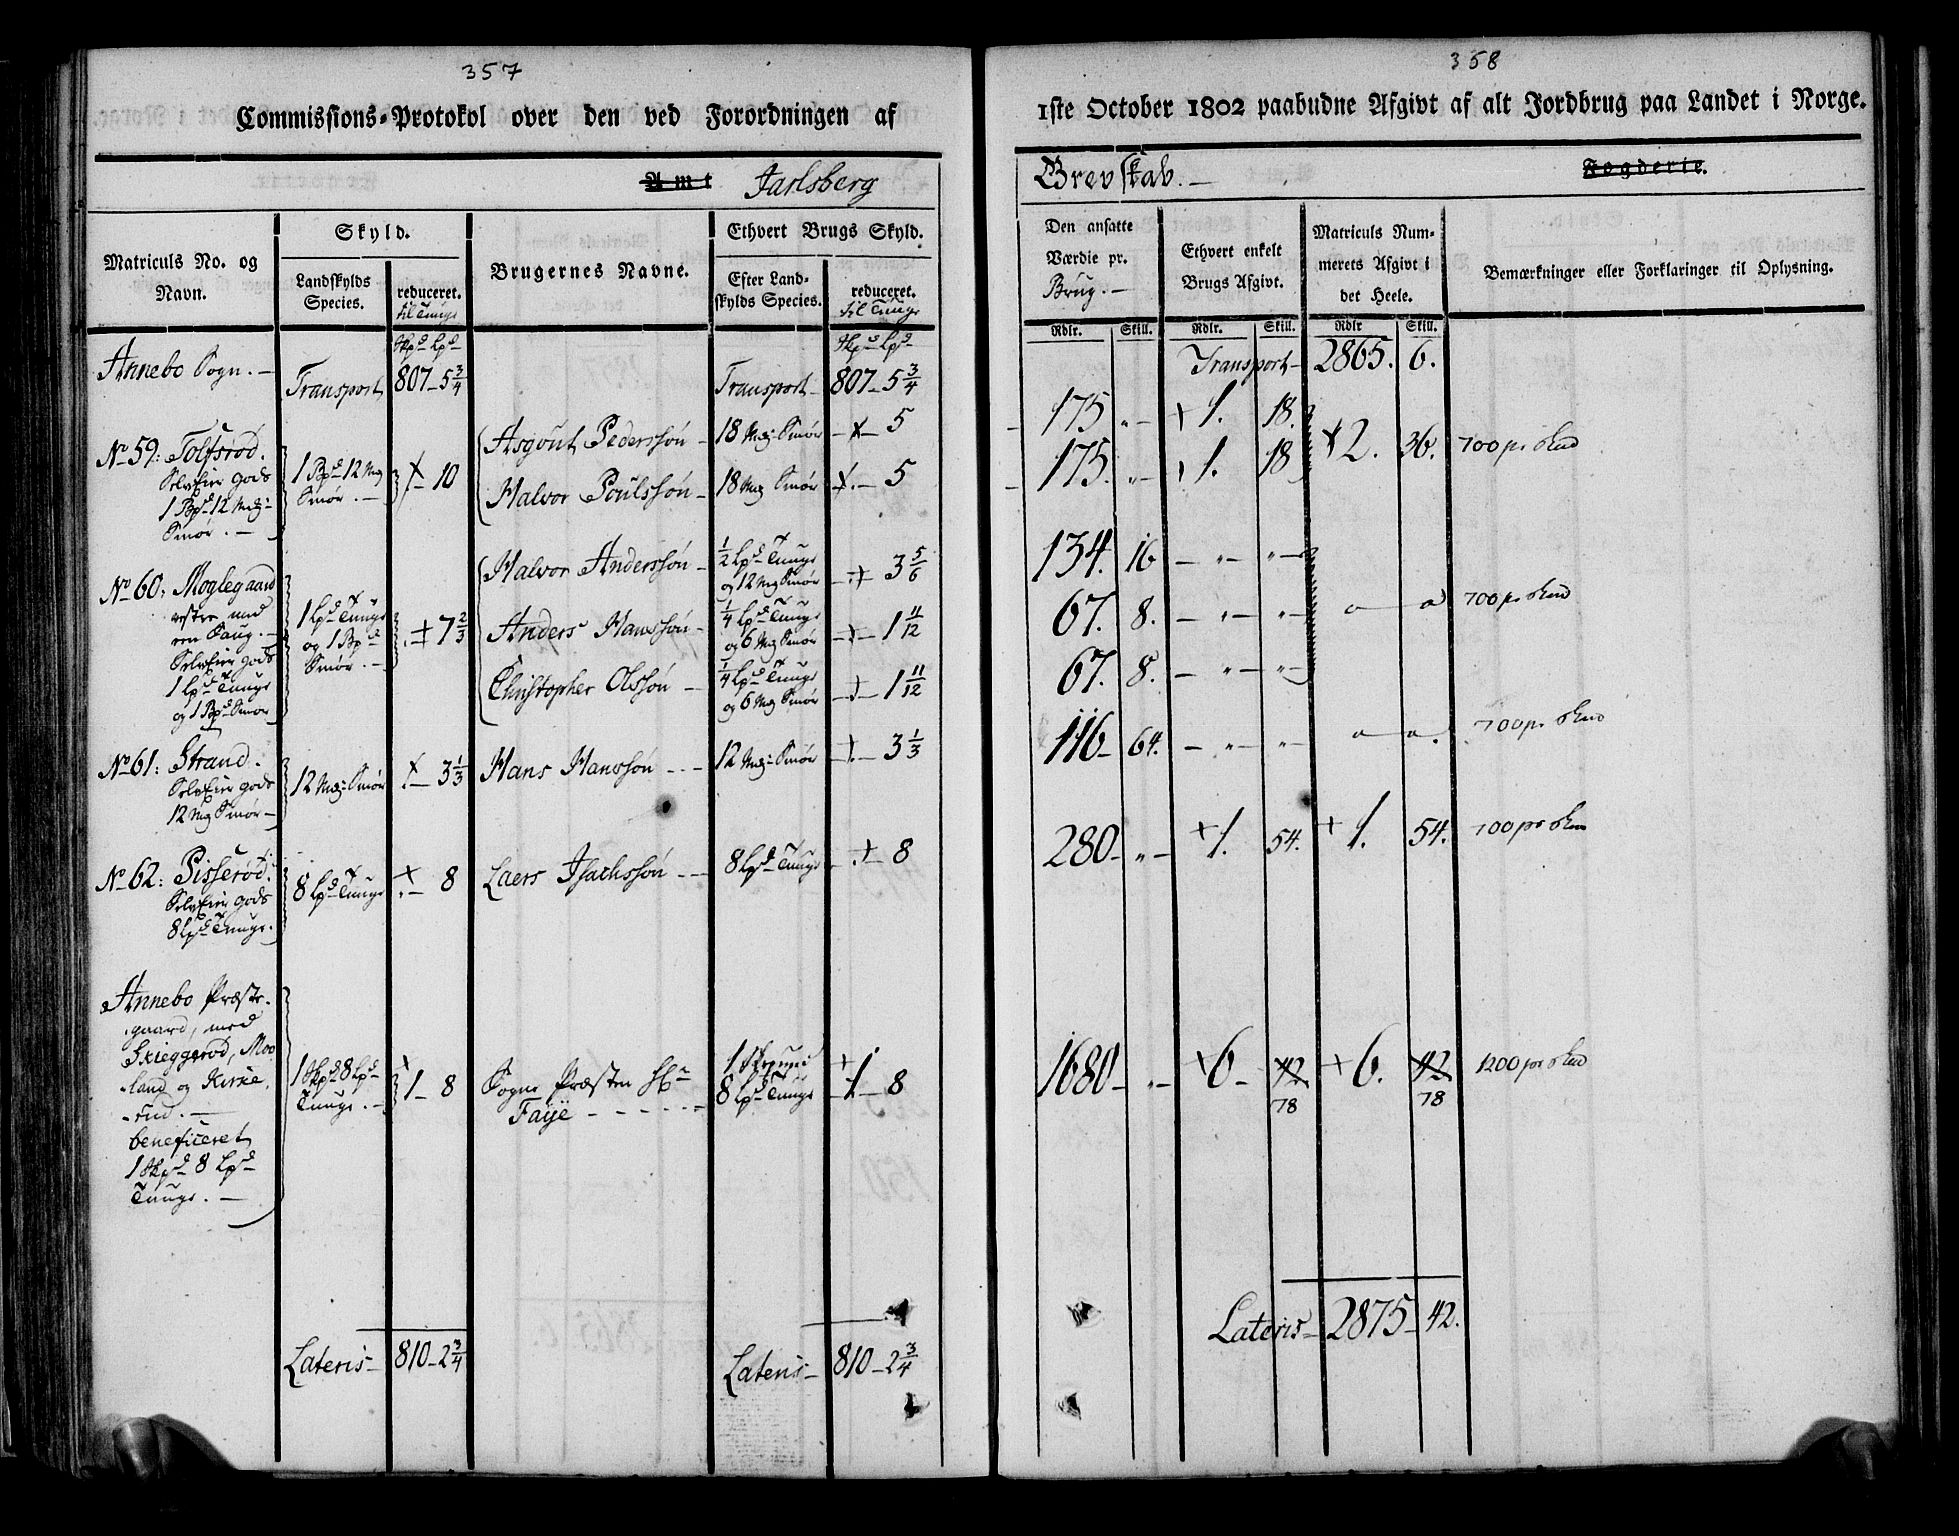 357
Commissions=Protokol over den ved Forordningen af
Amt Jarlsberg
Matriculs No. og Navn.
Skyld.
Landskylds Species.
reduceret. til Tunge
Brugernes Navne.
Ethvert Brugs Skyld.
Efter Landskylds Species.
reduceret. til Tunge
Annebo Sogn. — Transport 807 — 5 3/4 Transport — 807 — 5 3/4
No 59: Tolfsrød.
SelvEier Gods
1 Bpd 12 Mg:
Smør. —
1 Bpd 12 Mg
Smør. —
10
Asgout Pederssøn — 18 Mg: Smør — 5
Halvor Poulssøn — 18 Mg Smør — 5
No 60: Moglegaard
vestre med
een Saug. —
SelvEier Gods
1 Lpd Tunge
og 1 Bpd Smør
1 Lpd Tunge
og 1 Bpd
Smør. —
7 2/3
Halvor Anderssøn — 1/2 Lpd Tunge
og 12 Mg Smør — 3 5/6
Anders Hanssøn — 1/4 Lpd Tunge
og 6 Mg Smør — 1 11/12
Christopher Olssøn — 1/4 Lpd Tunge
og 6 Mg Smør — 1 11/12
No 61: Strand.
SelvEier Gods
12 Mg Smør —
12 Mg: Smør — 3 1/3
Hans Hanssøn — 12 Mg: Smør — 3 1/3
No 62: Pisserød.
SelvEier Gods
8 Lpd Tunge.
8 Lpd Tunge — 8
Laers Isachssøn — 8 Lpd Tunge — 8
Annebo Præste-
gaard, med
Skieggerød, Moe-
land og Kirke-
rud. —
beneficeret
1 Skpd 8 Lpd
Tunge. —
1 Skpd 8 Lpd
Tunge. —
1 — 8
Sogne Præsten Hr
Faÿe — 1 Skippund
8 Lpd Tunge — 1 — 8
Lateris — 810 — 2 3/4 Lateris — 810 — 2 3/4
358
1ste October 1802 paabudne Afgivt af alt Jordbrug paa Landet i Norge.
Grevskab. — Fogderie.
Den ansatte Værdie pr. Brug. —
Ethvert enkelt Brugs Afgivt.
Matriculs Nummerets Afgivt i det Heele.
Bemærkninger eller Forklaringer til Oplysning.
Rdlr. Skill. Rdlr. Skill. Rdlr Skill.
Transport — 2865. 6.
175 „ — 1. 18.
175. „ — 1. 18 2. 36. 700 pr Skd
134. 16 — „ — „ —
67. 8. — „ — „ — 700 pr Skd
67. 8. — „ — „ —
116 — 64. — „ — „ — 700 pr Skd
280 — „ — 1. 54. 1. 54. 700 pr Skd
1680 — „ — 6 — 42 6. 42 1200 pr Skd
78 78
Lateris — 2875 — 42.